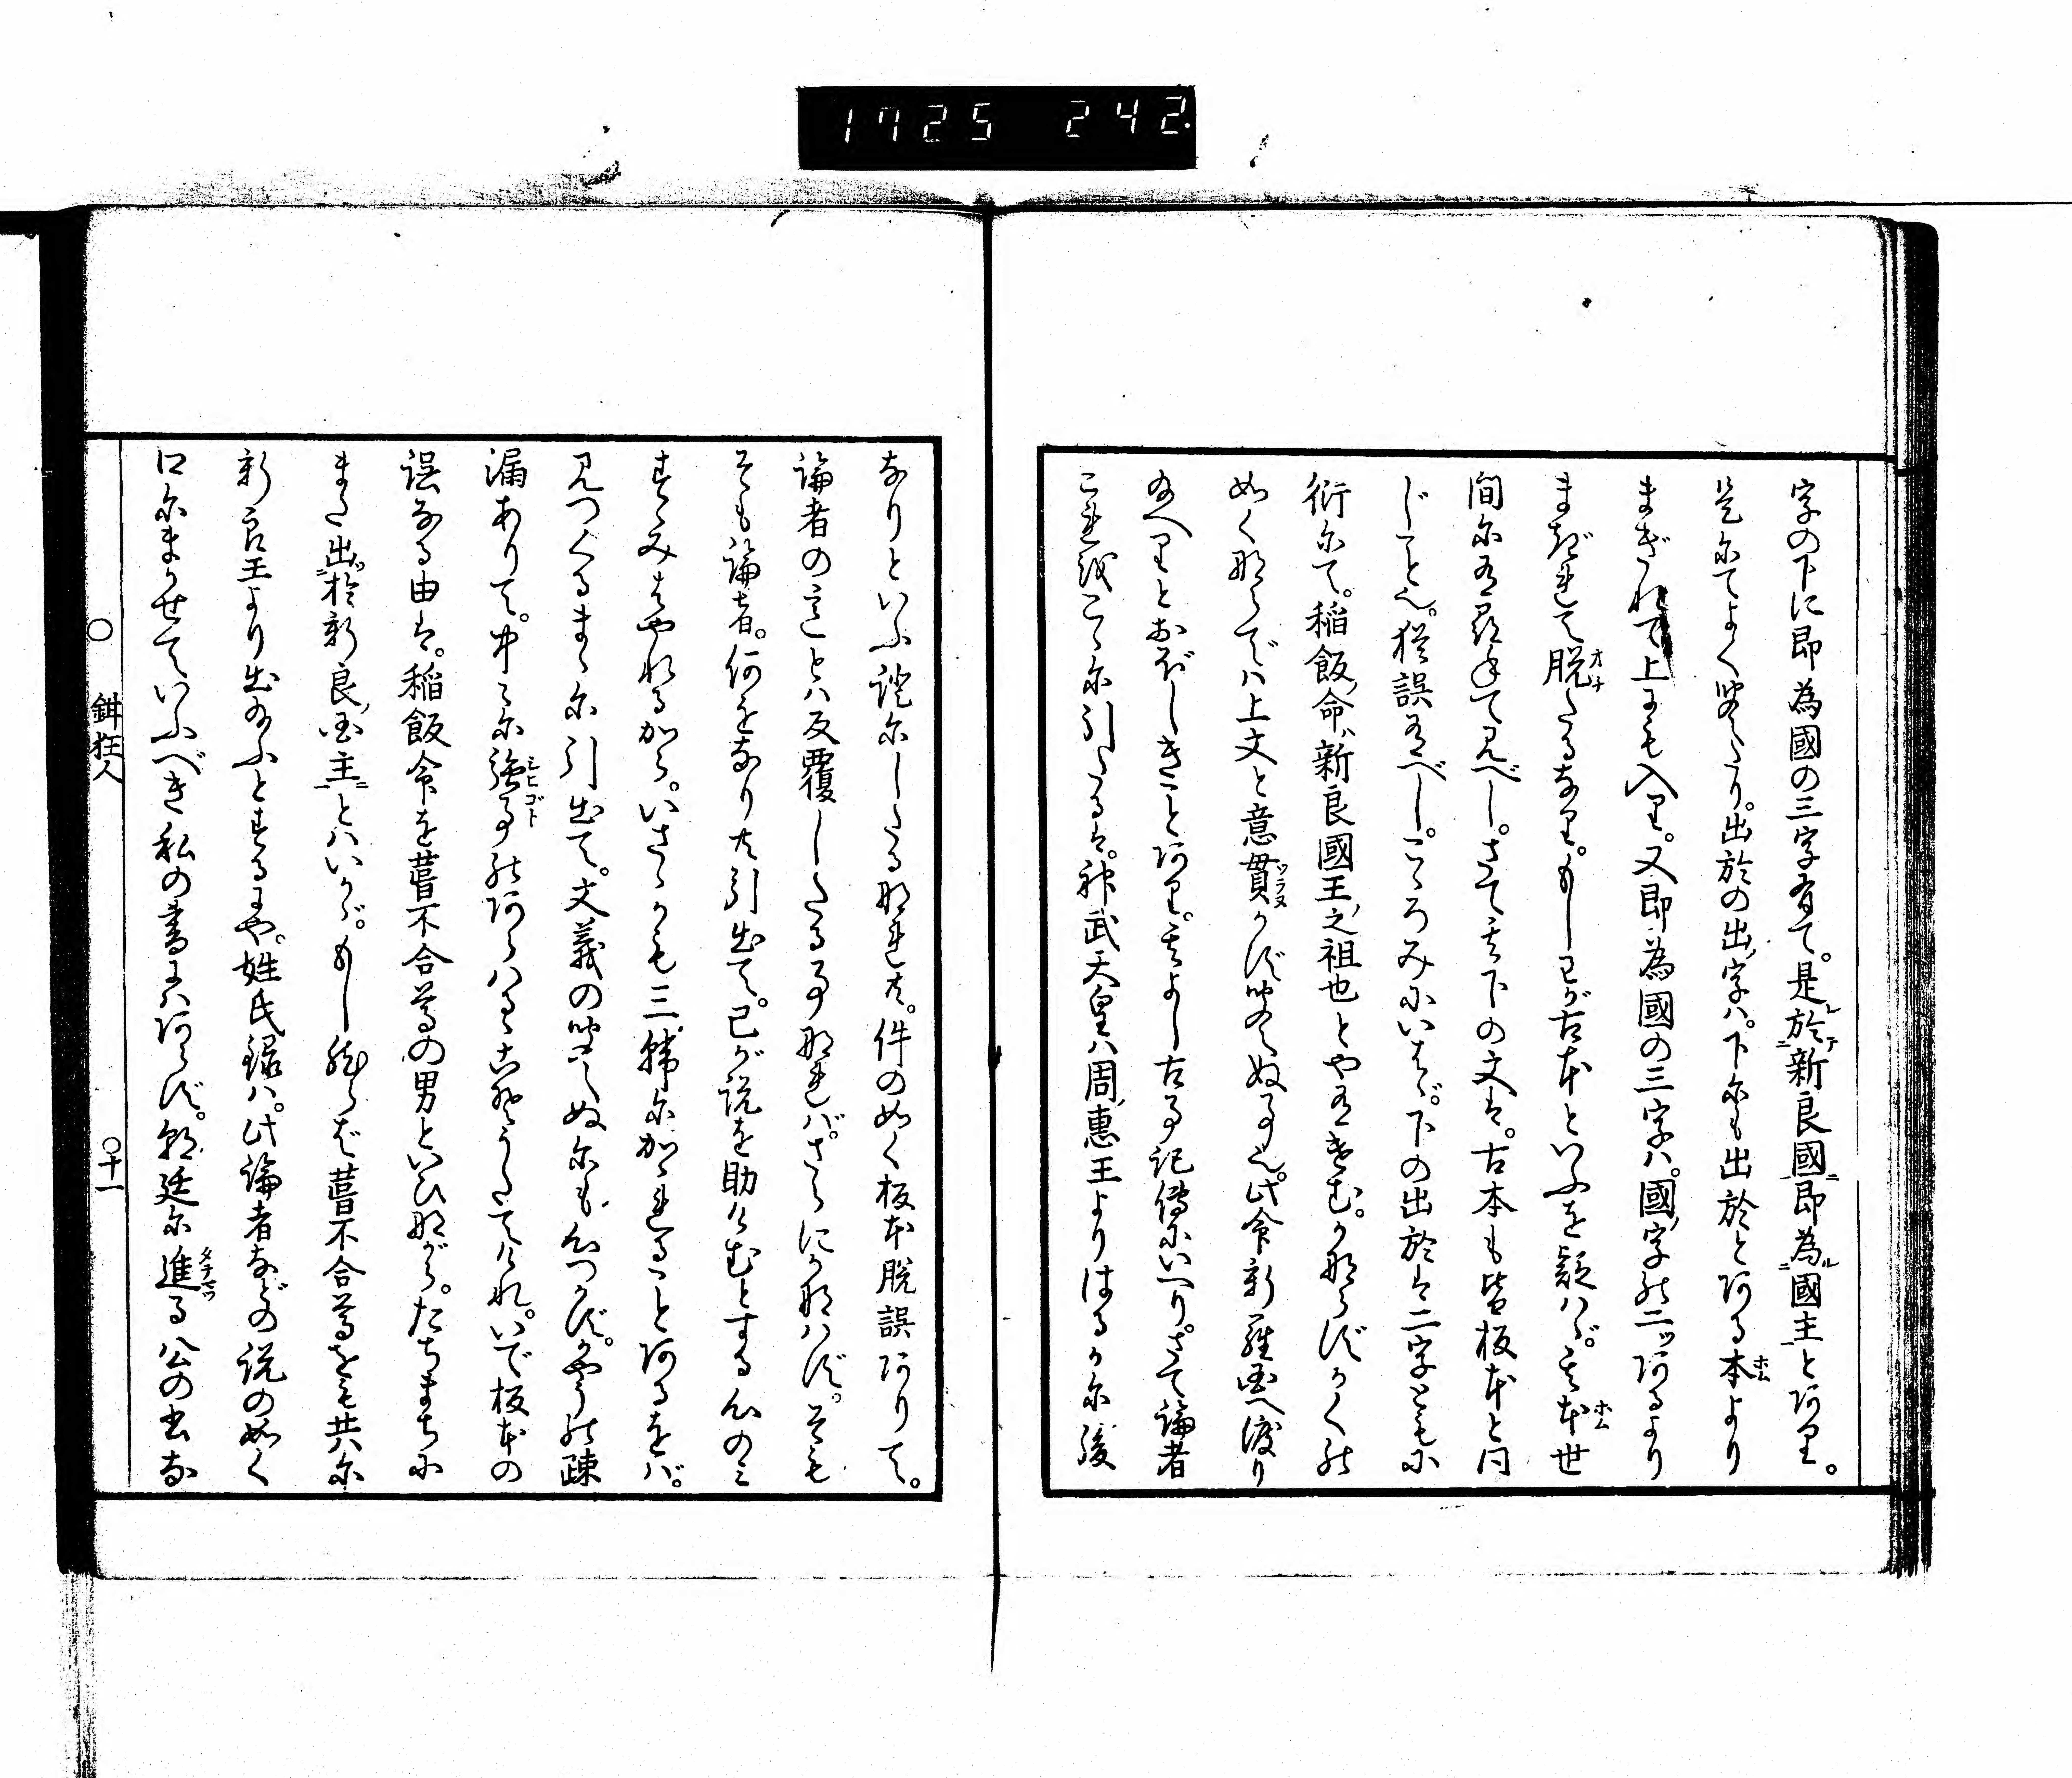 1725 242.
字の下に即為國の三字有て。是於新良國即為國主とあり。
是にてよく聞えたり。出於の出字ハ。下にも出於とある本より
まぎれて上にも入り。又即為國の三字ハ。國字の二ッあるより
まぎれて脱たるなり。もし己が古本といふを疑ハヾ。其本世
間に有を尋て見べし。さて其下の文は。古本も皆板本と同
じこと也。猶誤有べし。こゝろみにいはゞ。下の出於は二字ともに
衍にて。稲飯命ハ新良國王之祖也とや有けむ。かならずかくの
如くならでハ上文と意貫かず聞えぬ事也。此命新羅国へ渡り
給へりとおぼしきことあり。其よし古事記傳にいへり。さて論者
これをこゝに引たるは。神武天皇ハ周惠王よりはるかに後
なりといふ證にしたるなれど。件の如く板本脱誤ありて。
論者の意とハ反覆したる事なれバ。さらにかなハず。そも
そも論者。何をなりと引出て。己が説を助けむとする心のミ
すゝみはやれるから。いさゝかも三韓にかゝれることあるをバ。
見つくるまゝに引出て。文義の聞えぬにも心つかず。かやうの疎
漏ありて。中々に強事のあらハるゝこそうたてけれ。いで板本の
誤なる由は。稲飯命を葺不合尊の男といひながら。たちまちに
また出於新良国主とハいかゞ。もし然らば葺不合尊をも共に
新良王より出給ふとするにや。姓氏録ハ。此論者などの説の如く
口にまかせていふべき私の書にハあらず。朝廷に進る公の書な
○ 鉗狂人 ○十一